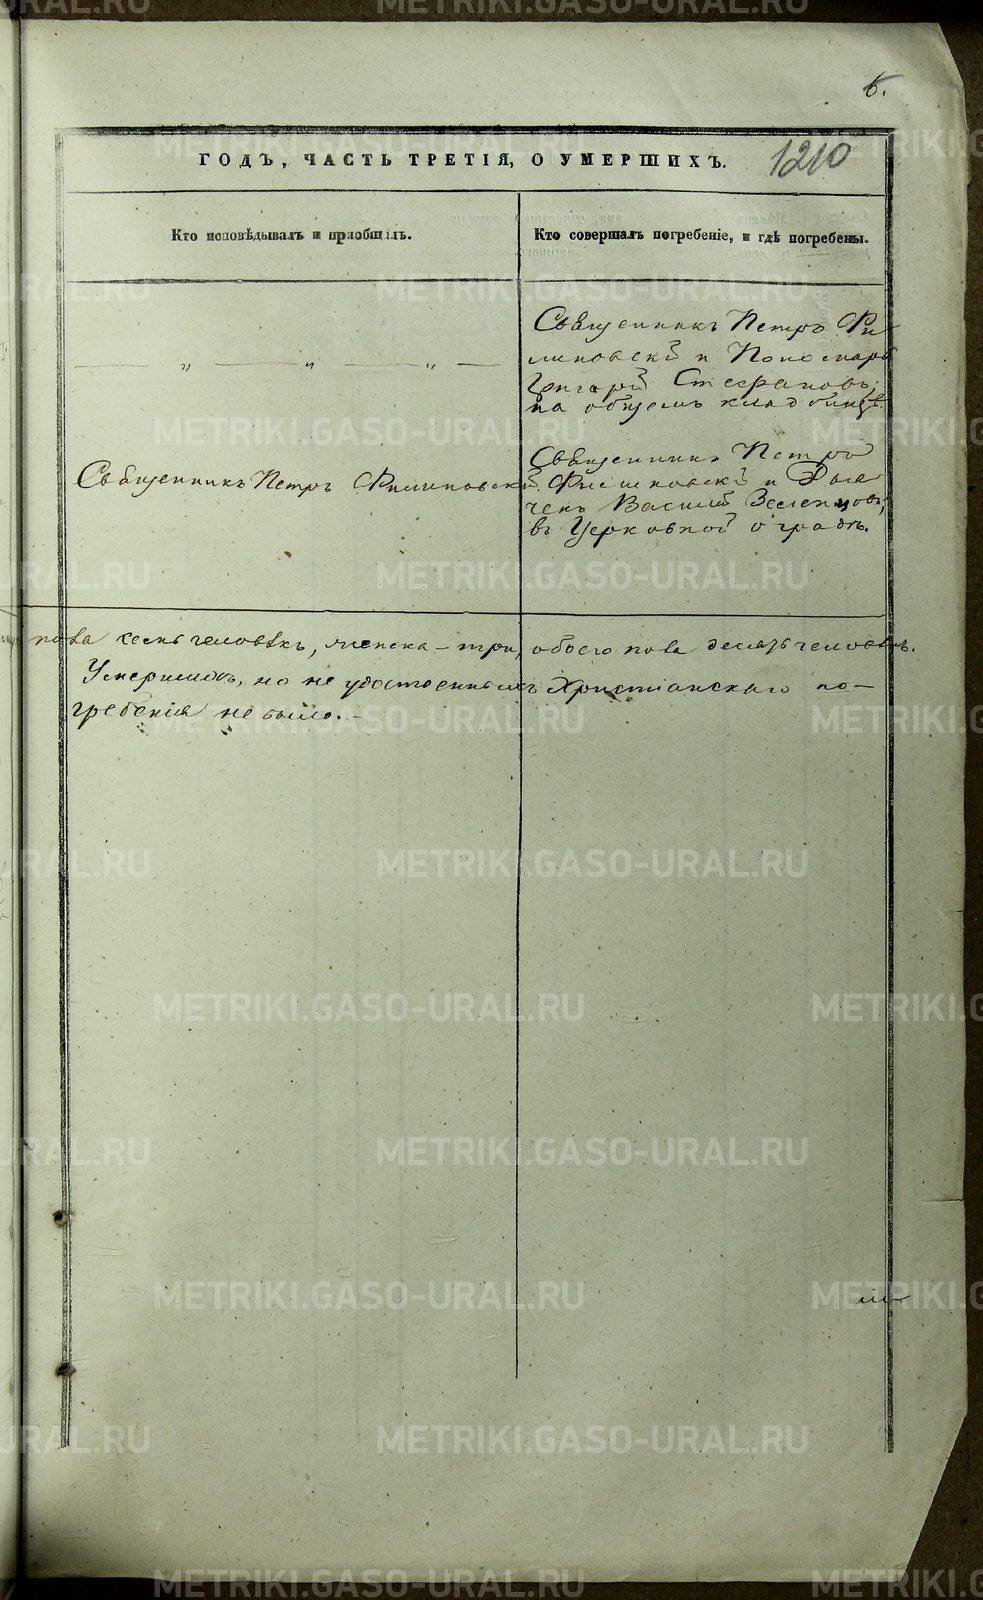 6.
1210
ГОДЪ, ЧАСТЬ ТРЕТІЯ, О УМЕРШИХЪ.
Кто исповѣдывалъ и пріобщалъ.
Кто совершалъ погребеніе, и гдѣ погребены.
Священникъ Петръ Фи
липовскій и Пономарь
Григорій Стефановъ;
на общемъ кладбищѣ.
— „ — „ — „ —
Священникъ Петръ Филиповскій.
Священникъ Петръ
Филиповскій и Дья
чекъ Василій Зеленцовъ;
въ Церковной оградѣ.
пола семь человѣкъ, женска – три, обоего пола десять человѣкъ.
Умершихъ, но не удостоенныхъ Христіанскаго по–
гребенія не было. –
METRIKI.GASO-URAL.RU